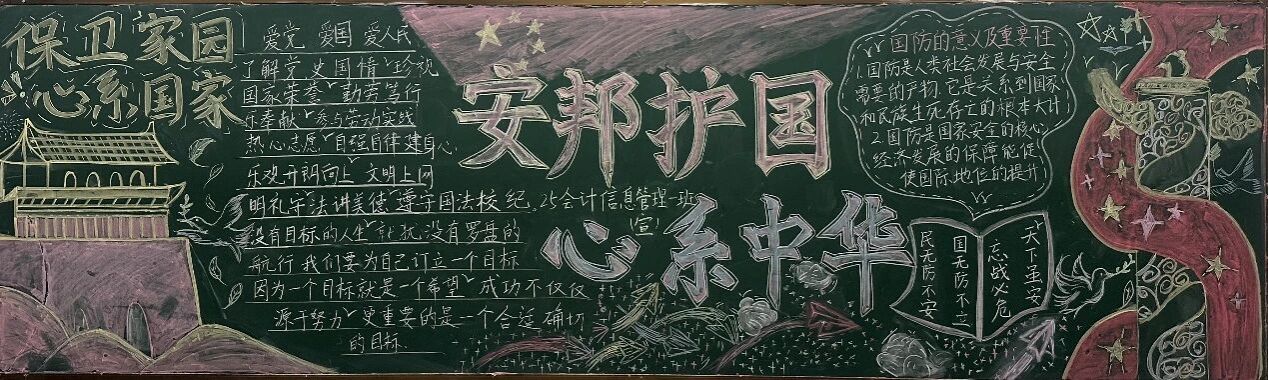 保卫家园
心系国家
爱党 爱国 爱人民
了解党史国情 珍视
国家荣誉 勤劳笃行
乐奉献 参与劳动实践
热心志愿 自强自律 健身心
乐观开朗向上 文明上网
明礼守法讲美德 遵守国法校纪
没有目标的人生 就犹没有罗盘的
航行 我们要为自己订立一个目标
因为一个目标就是一个希望 成功不仅仅
源于努力 更重要的是一个合适 确切
的目标
安邦护国
心系中华
25会计信息管理一班
(宣)
国防的意义及重要性
1.国防是人类社会发展与安全
需要的产物,它是关系到国家
和民族生死存亡的根本大计
2.国防是国家安全的核心
经济发展的保障能促
使国际地位的提升
天下虽安
忘战必危
国无防不立
民无防不安